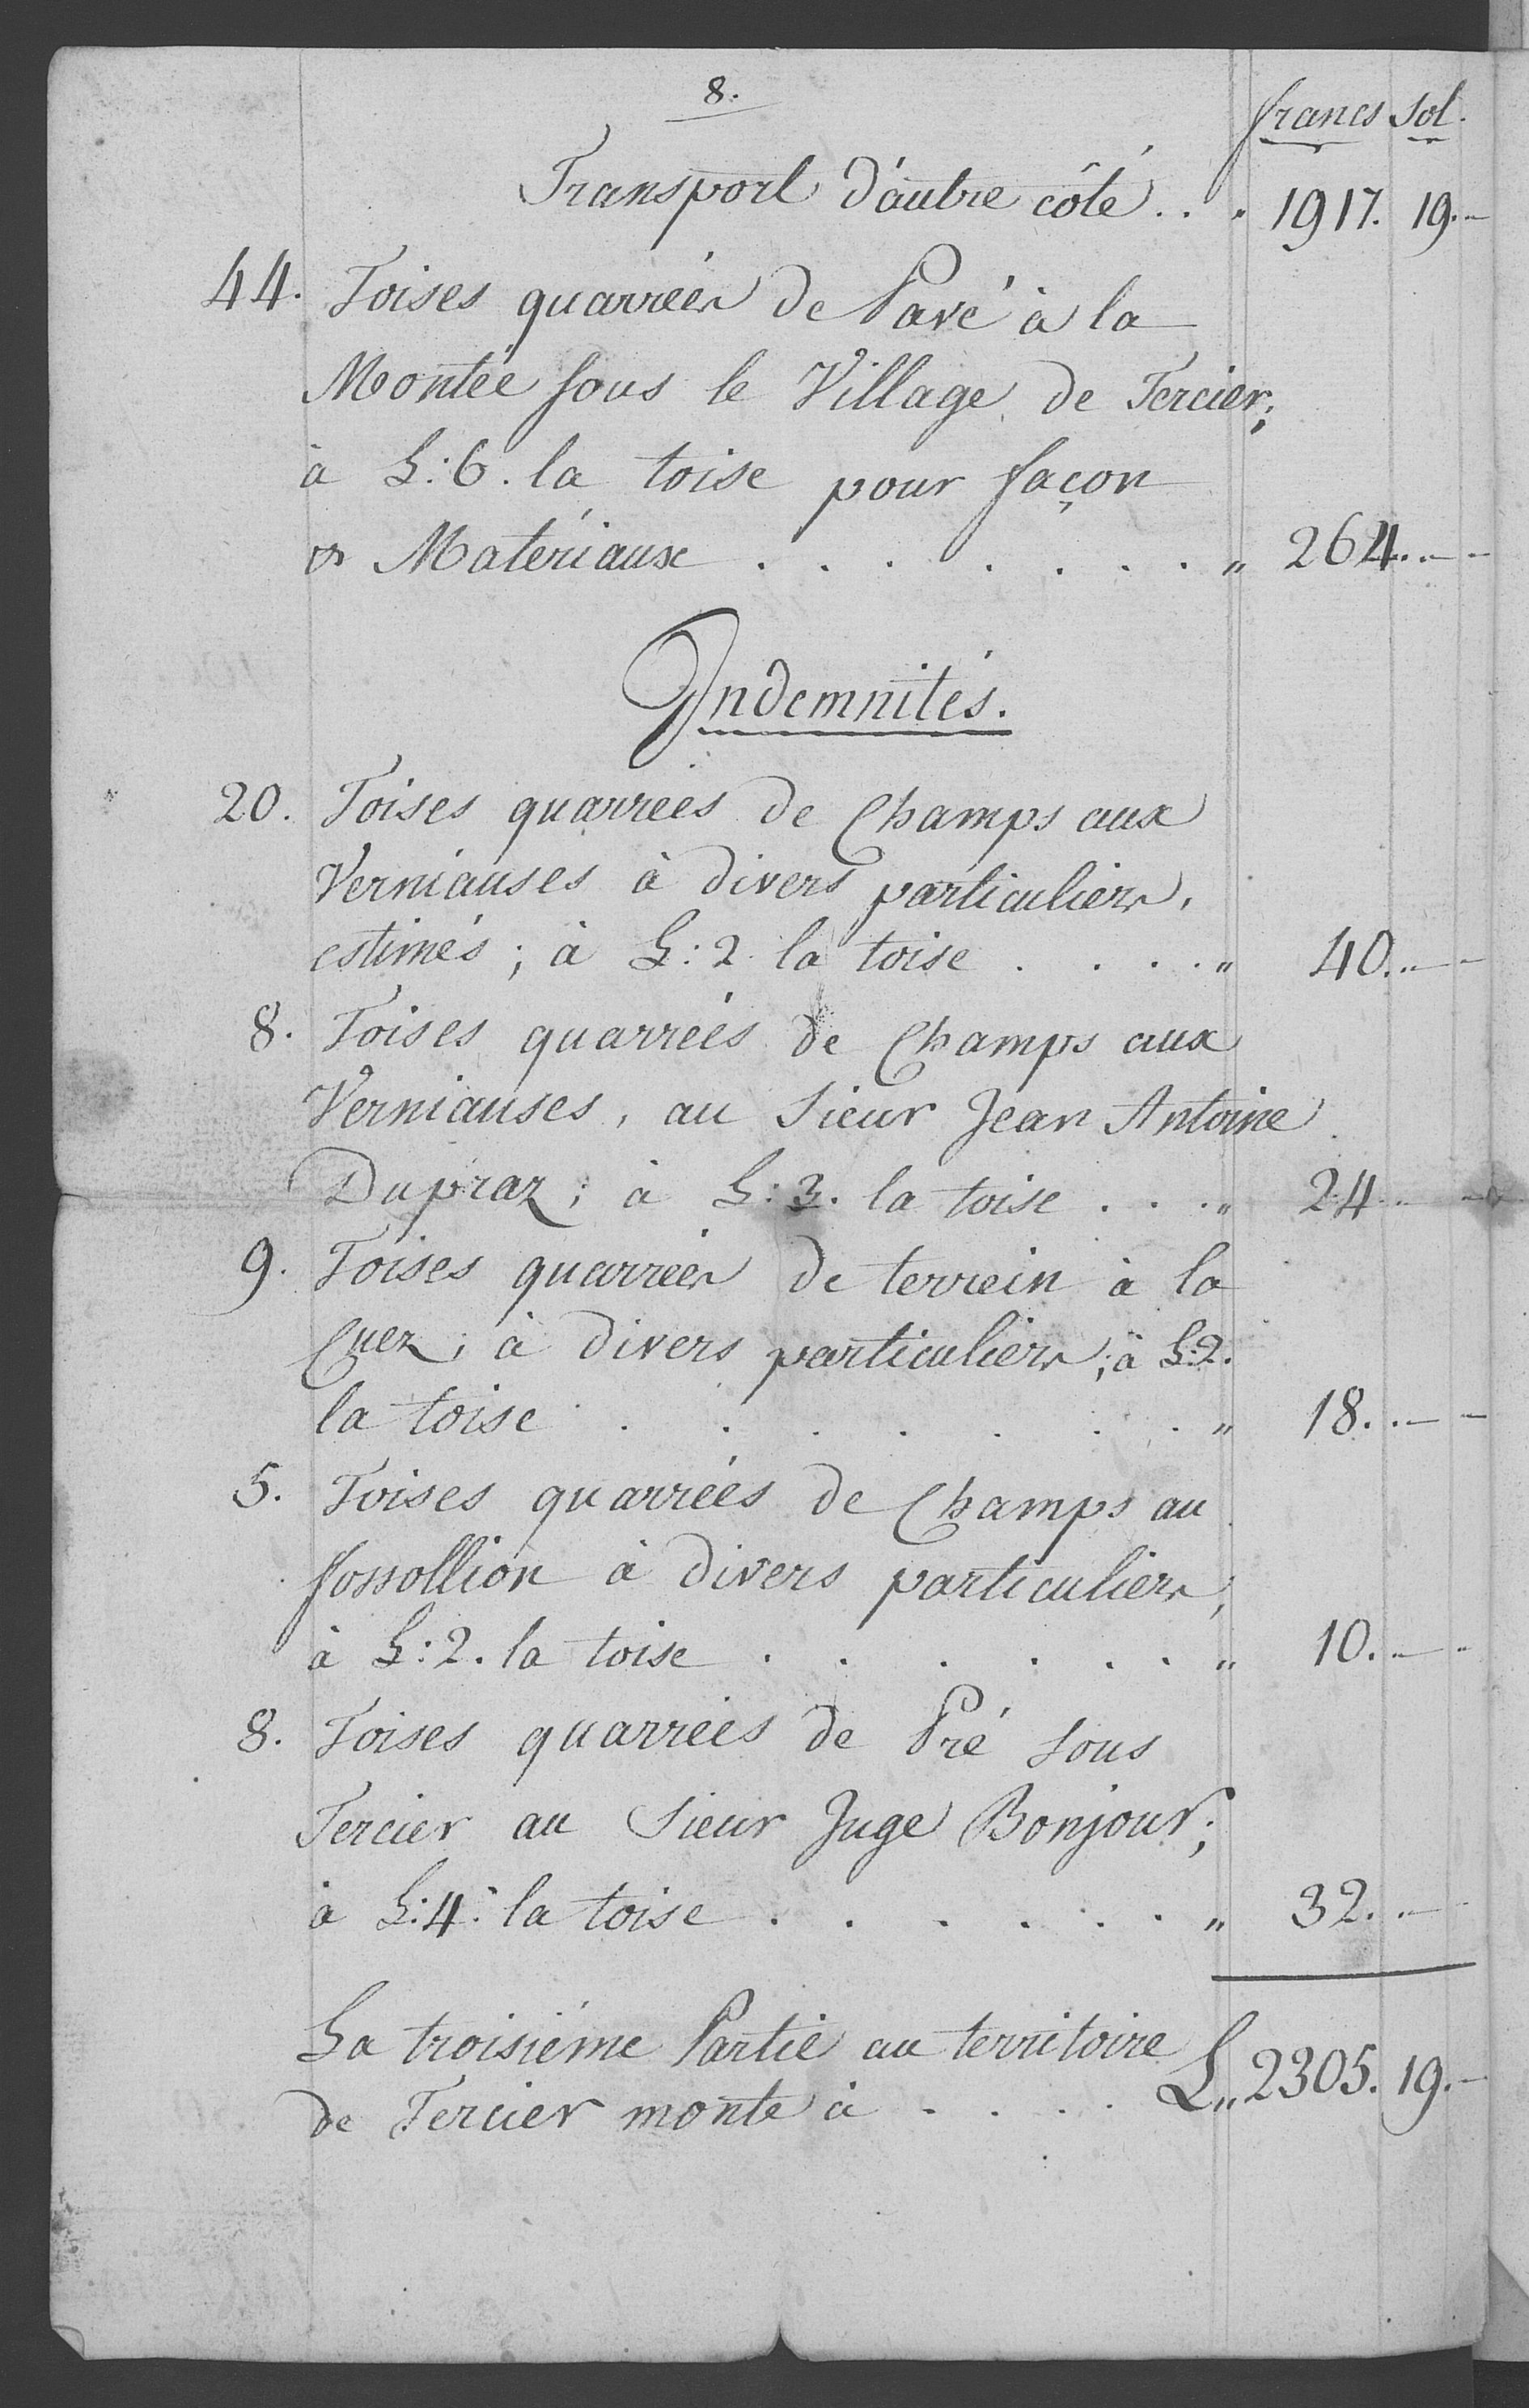 8.
francs sol.
Transport d'autre côté . . . 1917. 19.-
44. Toises quarrées de Pavé à la
Montée sous le Village de Tercier;
à L:6. la toise pour façon
& Matériaux . . . . . . . " 264..--
Indemnités.
20. Toises quarrées de Champs aux
Verniauses à divers particuliers,
estimés; à L:2 la toise . . . . " 40..--
8. Toises quarrées de Champs aux
Verniauses, au Sieur Jean Antoine
Dupraz; à L:3. la toise . . . " 24..--
9. Toises quarrées de terrein à la
Cuez; à divers particuliers; à L:2.
la toise . . . . . . . " 18..--
5. Toises quarrées de Champs au
fossollion à divers particuliers;
à L:2. la toise . . . . . . " 10.--
8. Toises quarrées de Pré sous
Tercier au Sieur Juge Bonjour;
à L:4. la toise . . . . . . " 32..-
La troisiéme Partie au territoire
de Tercier monte à . . . . L" 2305. 19.-